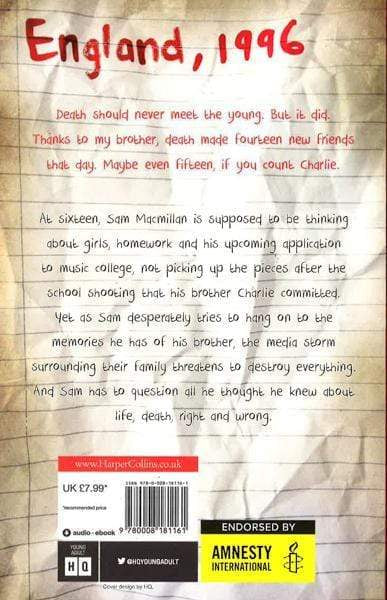 England, 1996
Death should never meet the young. But it did.
Thanks to my brother, death made fourteen new friends
that day. Maybe even fifteen, if you count Charlie.
At sixteen, Sam Macmillan is supposed to be thinking
about girls, homework and his upcoming application
to music college, not picking up the pieces after the
school shooting that his brother Charlie committed.
Yet as Sam desperately tries to hang on to the
memories he has of his brother, the media storm
surrounding their family threatens to destroy everything.
And Sam has to question all he thought he knew about
life, death, right and wrong.
www.HarperCollins.co.uk
UK £7.99*
*recommended price
audio+ebook
ISBN 978-0-008-18116-1
9 780008 181161
YOUNG
ADULT
HQ
@HQYOUNGADULT
Cover design by HQ
ENDORSED BY
AMNESTY
INTERNATIONAL